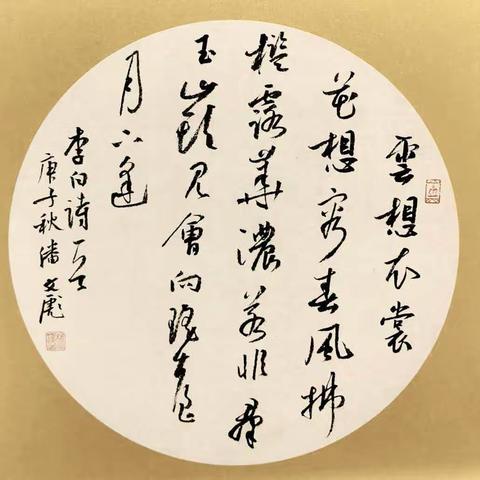 雲想衣裳
花想容春風拂
檻露華濃若非群
玉山頭見會向瑤臺
月下逢
李白詩一首
庚子秋潘文彪